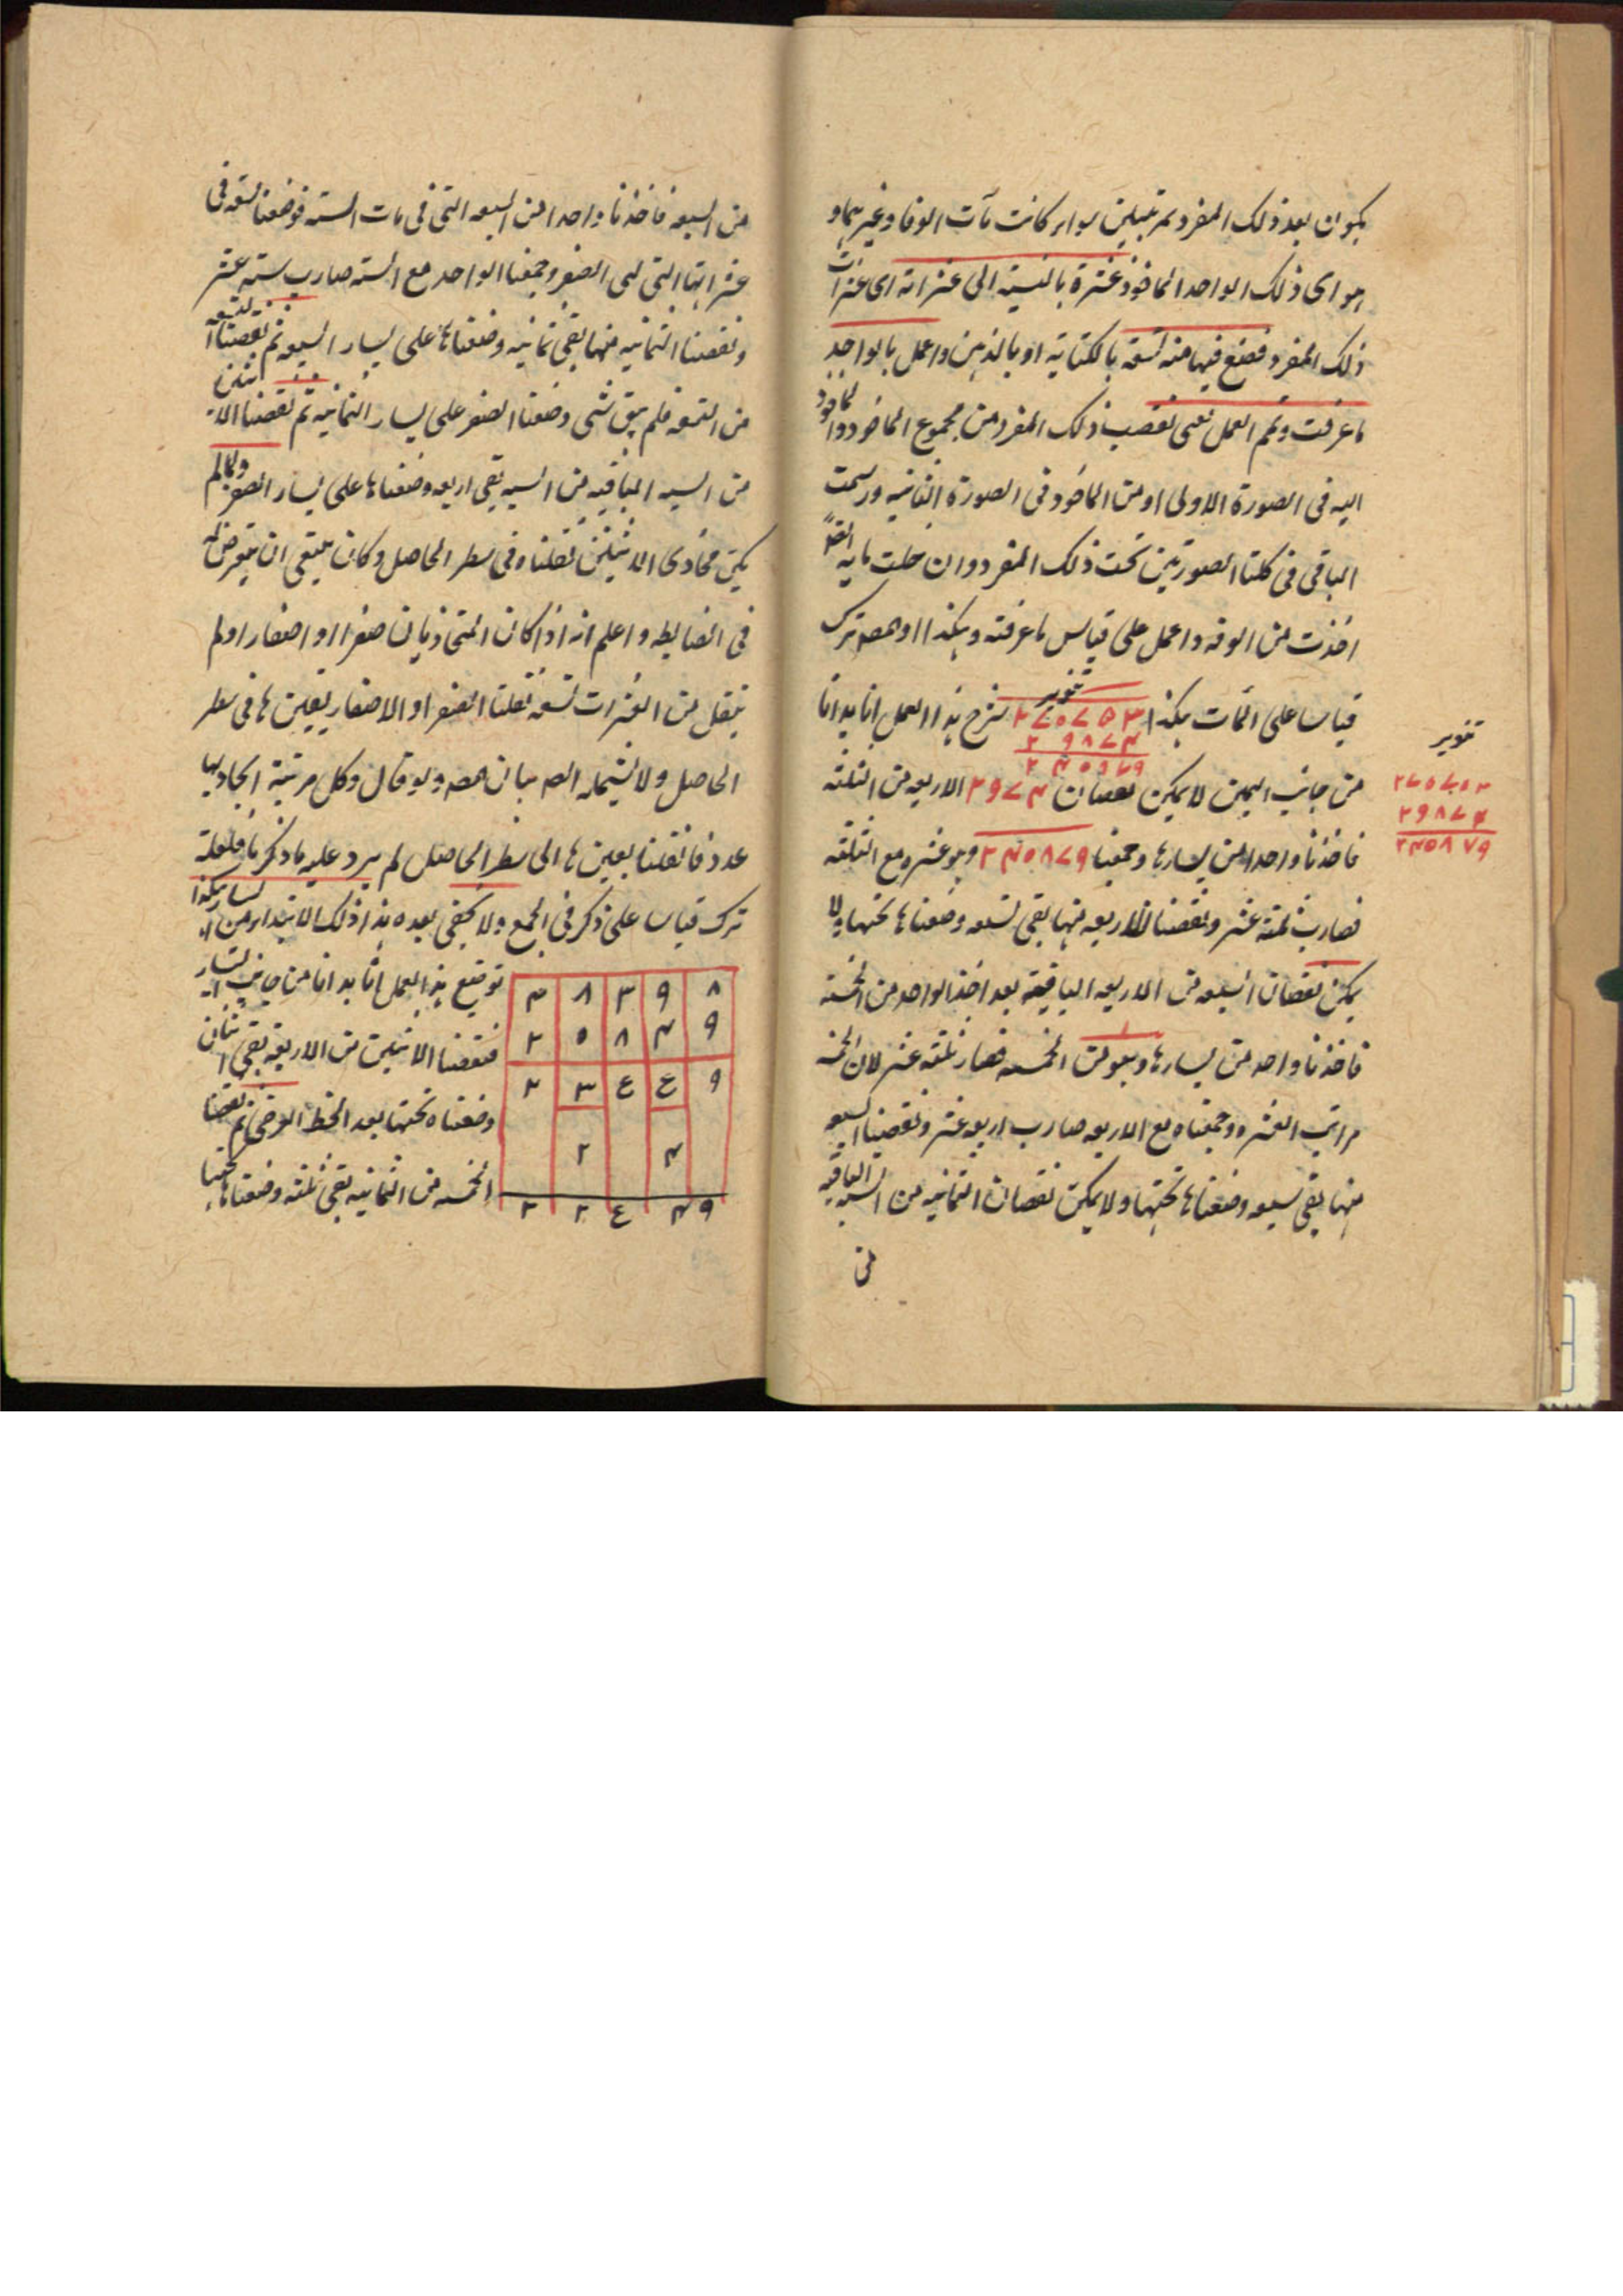 يكون بعد ذلك المفرد بمرتبتين سواء كانت مآت الوفا وغيرهما و
هو اى ذلك الواحد الماخوذ عشرة بالنسبة الى عشراته اى عشرات
ذلك المفرد فضع فيها منه تسعة بالكتابة او بالذهن واعمل بالواحد
ما عرفت وتمم العمل يعنى نقصت ذلك المفرد من مجموع الماخوذ والماخوذ
اليه فى الصورة الاولى او من الماخوذ فى الصورة الثانيه ورسمت
الباقى فى كلتا الصورتين تحت ذلك المفرد وان خلت مايه ايضا
اخذت من الوفه واعمل على قياس ما عرفته وهكذا او المصه ترك
قياسا على المآت هكذا ٢٧٥٧٥٣ شرح هذا العمل انا بدانا
تنوير
٢٩٨٧٤
من جانب اليمين لا يمكن نقصان ٢٩٧٤ الاربعه من الثلثه
فاخذنا واحدا من يسارها وجمعنا ٢٤٥٨٧٩ وهو عشره مع الثلثه
فصارت ثلثة عشر ونقصنا الاربعه منها بقى تسعه وضعناها تحتها ولا
يمكن نقصان السبعه من الاربعه الباقية بعد اخذ الواحد من الخمسة
فاخذنا واحد من يسارها وهو من الخمسه فصار ثلثه عشر لان الخمسه
مراتب العشره وجمعناه مع الاربعه صارت اربعه عشر ونقصنا السبعه
منها بقى سبعه وضعناها تحتها ولا يمكن نقصان الثمانيه من الستة الباقيه
من
تنوير
٢٧٥٧٥٣
٢٩٨٧٤
٢٤٥٨٧٩
من السبعه فاخذنا واحدا من السبعه التى فى مات السته فوضعنا تسعه فى
عشراتها التى هى الصفر وجمعنا الواحد مع السته صارت سته عشر
ونقصنا الثمانيه منها بقى ثمانيه وضعناها على يسار السبعه ثم نقصنا التسعه
من التسعه فلم يبق شى وضعنا الصفر على يسار الثمانيه ثم نقصنا الاثنين
من السته الباقيه من السبعه بقى اربعه وضعناها على يسار الصفر ولما لم
يكن محاذى الاثنين نقلناه فى سطر الحاصل وكان ينبغى ان يتعرض له
فى الضابطه واعلم انه اذا كان المتحاذيان صفرا او اصفار او لم
ينقل من العشرات تسعه نقلنا الصفر او الاصفار بعينها فى سطر
الحاصل ولا يشمله بيان المصه ولو قال وكل مرتبة لا يحاذيها
عدد فانقلنا بعينها الى سطر الحاصل لم يرد عليه ما ذكرنا فلعله
ترك قياسا على ذكر فى الجمع ولا يخفى بعده هذا ذلك الابتداء من اليسار هكذا
توضيح هذا العمل انا بدانا من جانب اليسار
فنقصنا الاثنين من الاربعه بقى اثنان
وضعناه تحتها بعد الخط العرضى ثم نقصنا
الخمسه من الثمانيه بقى ثلثه وضعناها تحتها
٤ ٨ ٣ ٩ ٨
٢ ٥ ٨ ٤ ٩
٢ ٣ ٤ ٤ ٩
٢ ٤
٢ ٢ ٤ ٤ ٩